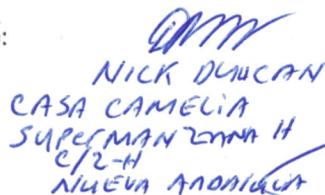 :
NICK DUNCAN
CASA CAMELIA
SUPERMANZANA H
C/2-H
NUEVA ANDALUCIA